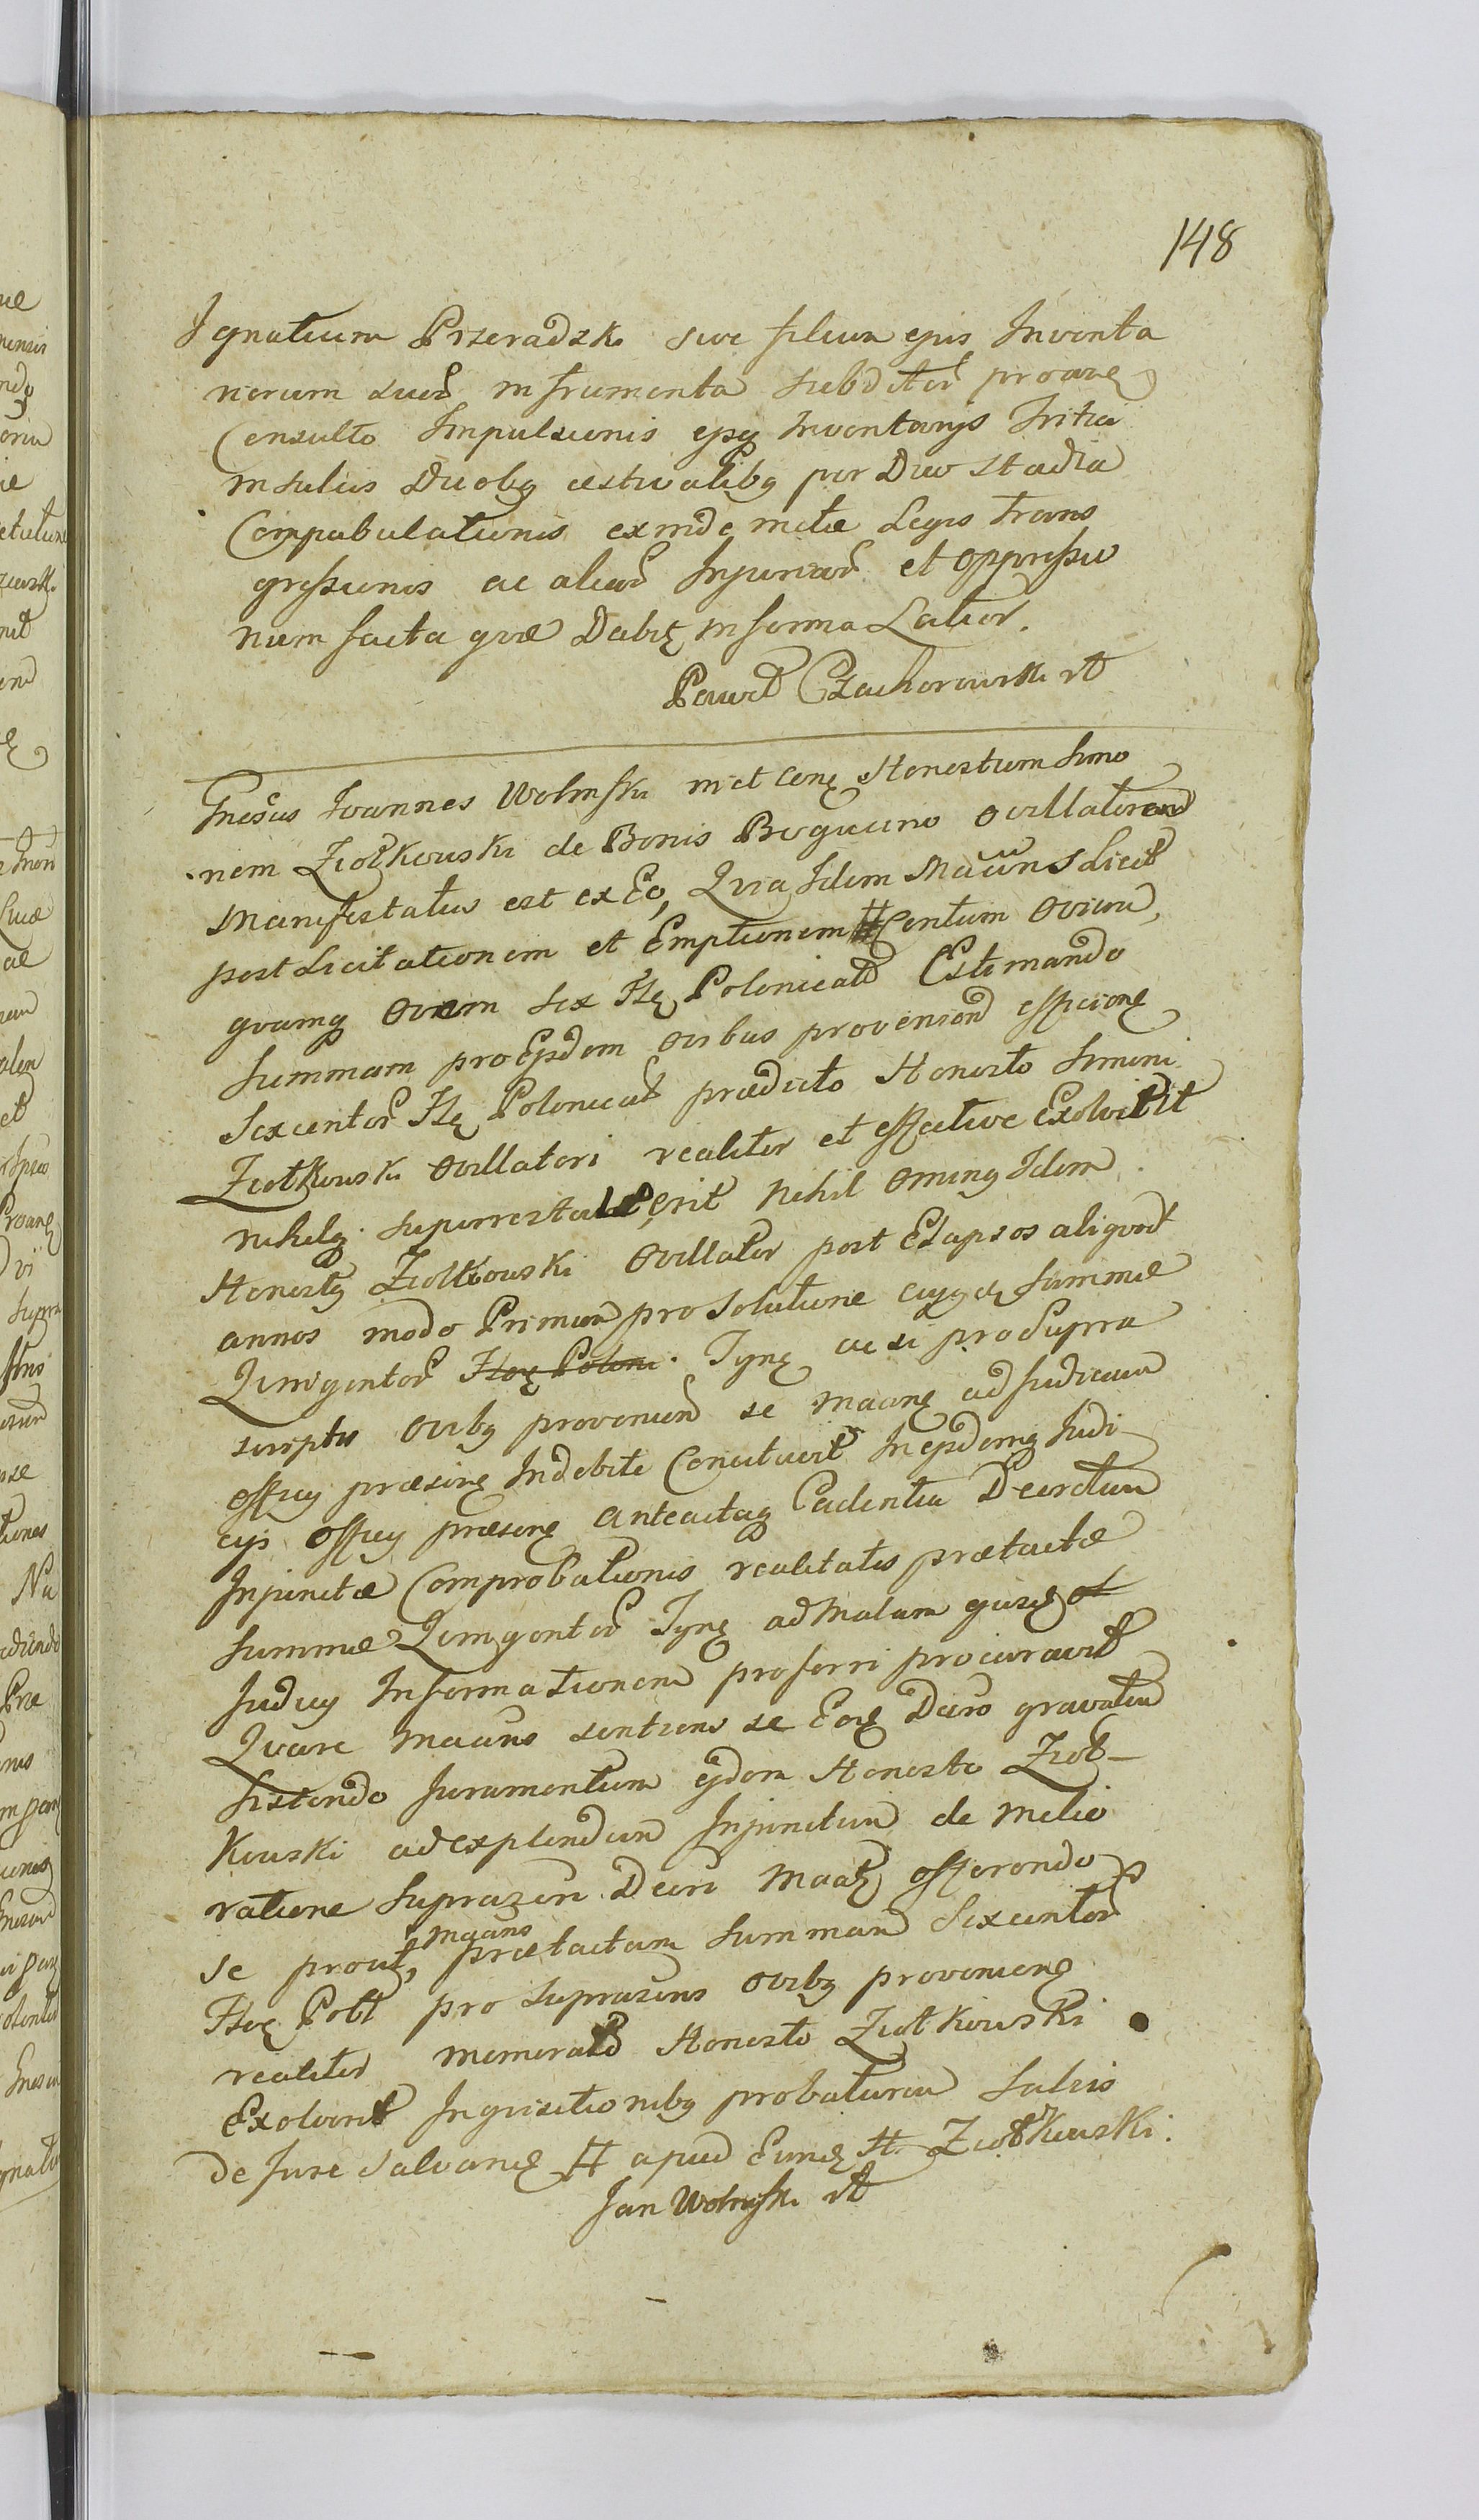 148
Ignatium Przeradzk sive filium ejus Inventa
riorum suor in frumenta subditor proane
Consulto Impulsionis ejsq Inventarijs Tritici
in sulcis Duobq aestivalibq per Duo stadia
Compabulationis exinde mitae Legis Trans
gressionis ac aliar Injuriar et oppressio
num facta quae Dabit in forma Latior.
Paweł Czachorowski rt
Gnesus Joannes Wolinski in et conę Honestum Simo
nem Ziołkowski de Bonis Bogucino ovillatorem
Manifestatus est ex Eo, Quia Idem Maans Licet
post Licitationem et Emptionem # Centum Ovium,
quamq Ovem sex Flę Polonical Estimando
summam pro Ejsdem ovibus proveniend efficienę
sexcentor Flę Polonical praedicto Honesto Simoni
Ziołkowski Ovillatori realiter et effective Exolverit
nihilq superrestaverit Nihil Ominq Idem
Honestq Ziołkowski Ovillator post Elapsos aliquot
annos modo Primum pro solutione cujscę Summae
Quingentor Flor Polon. Tynę ac si pro Supra
scriptis Ovibq provenien se Maanę ad Judicium
Officy praesenę Indebite Concitavit In ejsdemq Judi
cys Officy praesenę anteactaq Cadentia Decretum
Injunctae Comprobationis realitatis praetactae
Summae Quingentor Tynę ad Malam ejusd
Judicy Informationem proferri procuravit
Quare Maans sentiens se Eoę Dcro gravatum
sistendo Juramentum ejdem Honesto Zioł-
kowski ad explendum Injunctum de melio
ratione suprascri Decri Maatę offerendo
se prout, maans praetactam summam sexcentor
Flor Poll pro suprascris ovibq provenienę
realiter memorato Honesto Ziołkowski
Exolverit Inquisitionibq probaturum Salvis
de Jure salvanę # apud Eundę H. Ziołkowski.
Jan Wolinski rt